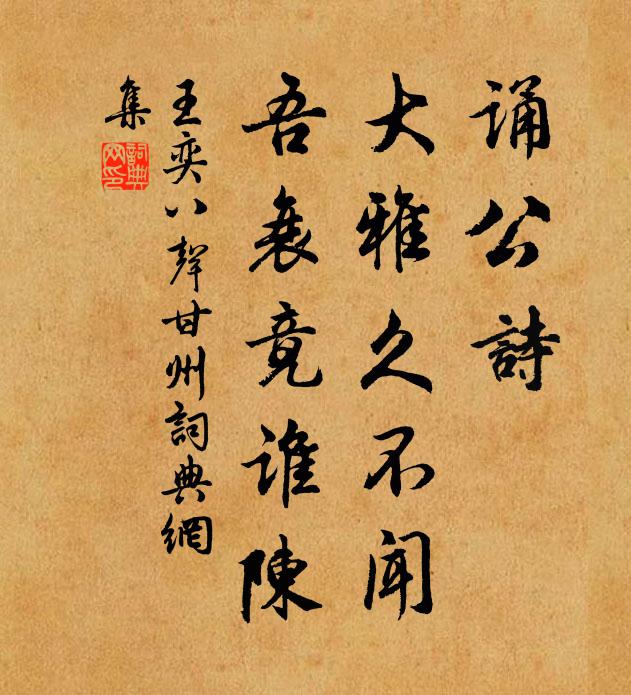 誦公詩
大雅久不聞
吾衰竟誰陳
王奕八聲甘州詞典網
集
詞典網印